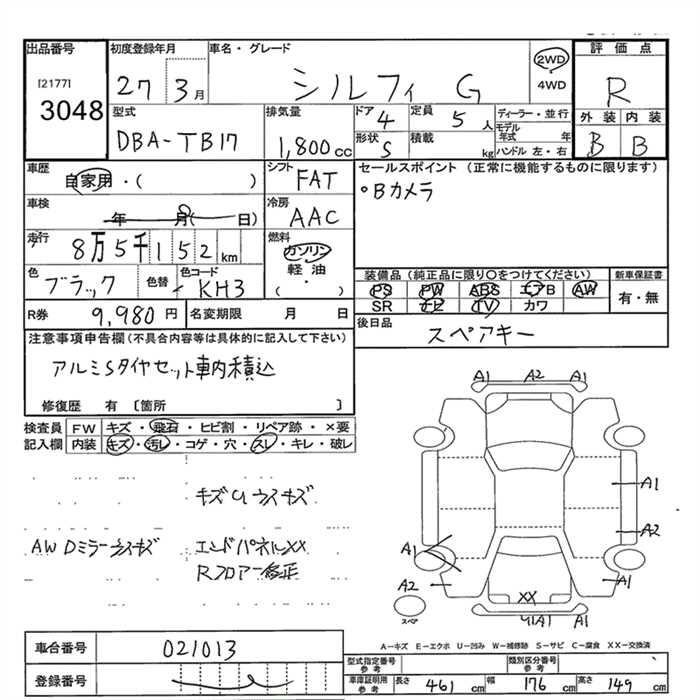 出品番号 初度登録年月 車名・グレード 評価点
[2177] 3048 27 3月 シルフィ G 2WD 4WD R
型式 排気量 ドア 定員 ディーラー・並行 外装 内装
DBA-TB17 1,800cc 4 5人 モデル年式 年 B B
形状 S 積載 kg ハンドル 左・右
車歴 自家用・( ) シフト FAT セールスポイント (正常に機能するものに限ります)
車検 年 月( 日) 冷房 AAC °Bカメラ
走行 8万5千152km 燃料 ガソリン 軽油 ・ ( )
色 ブラック 色替 色コード KH3
装備品 (純正品に限り○をつけてください) 新車保証書
PS PW ABS エアB AW 有・無
SR ナビ TV カワ
R券 9,980円 名変期限 月 日
後日品 スペアキー
注意事項申告欄 (不具合内容等は具体的に記入して下さい)
アルミSタイヤセット車内積込
修復歴 有 〔箇所 〕
検査員記入欄 FW キズ・飛石・ヒビ割・リペア跡・×要
内装 キズ・汚し・コゲ・穴・スレ・キレ・破レ
A1 A2 A1
キズUウスキズ
A1
AW Dミラーウスキズ エンドパネルXX
A2
A1
Rフロアー修正
A2 A1
XX
スペア UIA1 A1
A-キズ E-エクボ U-凹み W-補修跡 S-サビ C-腐食 XX-交換済
車台番号 021013
登録番号
型式指定番号参考 類別区分番号参考
車庫証明用参考 長さ 461cm 幅 176cm 高さ 149cm